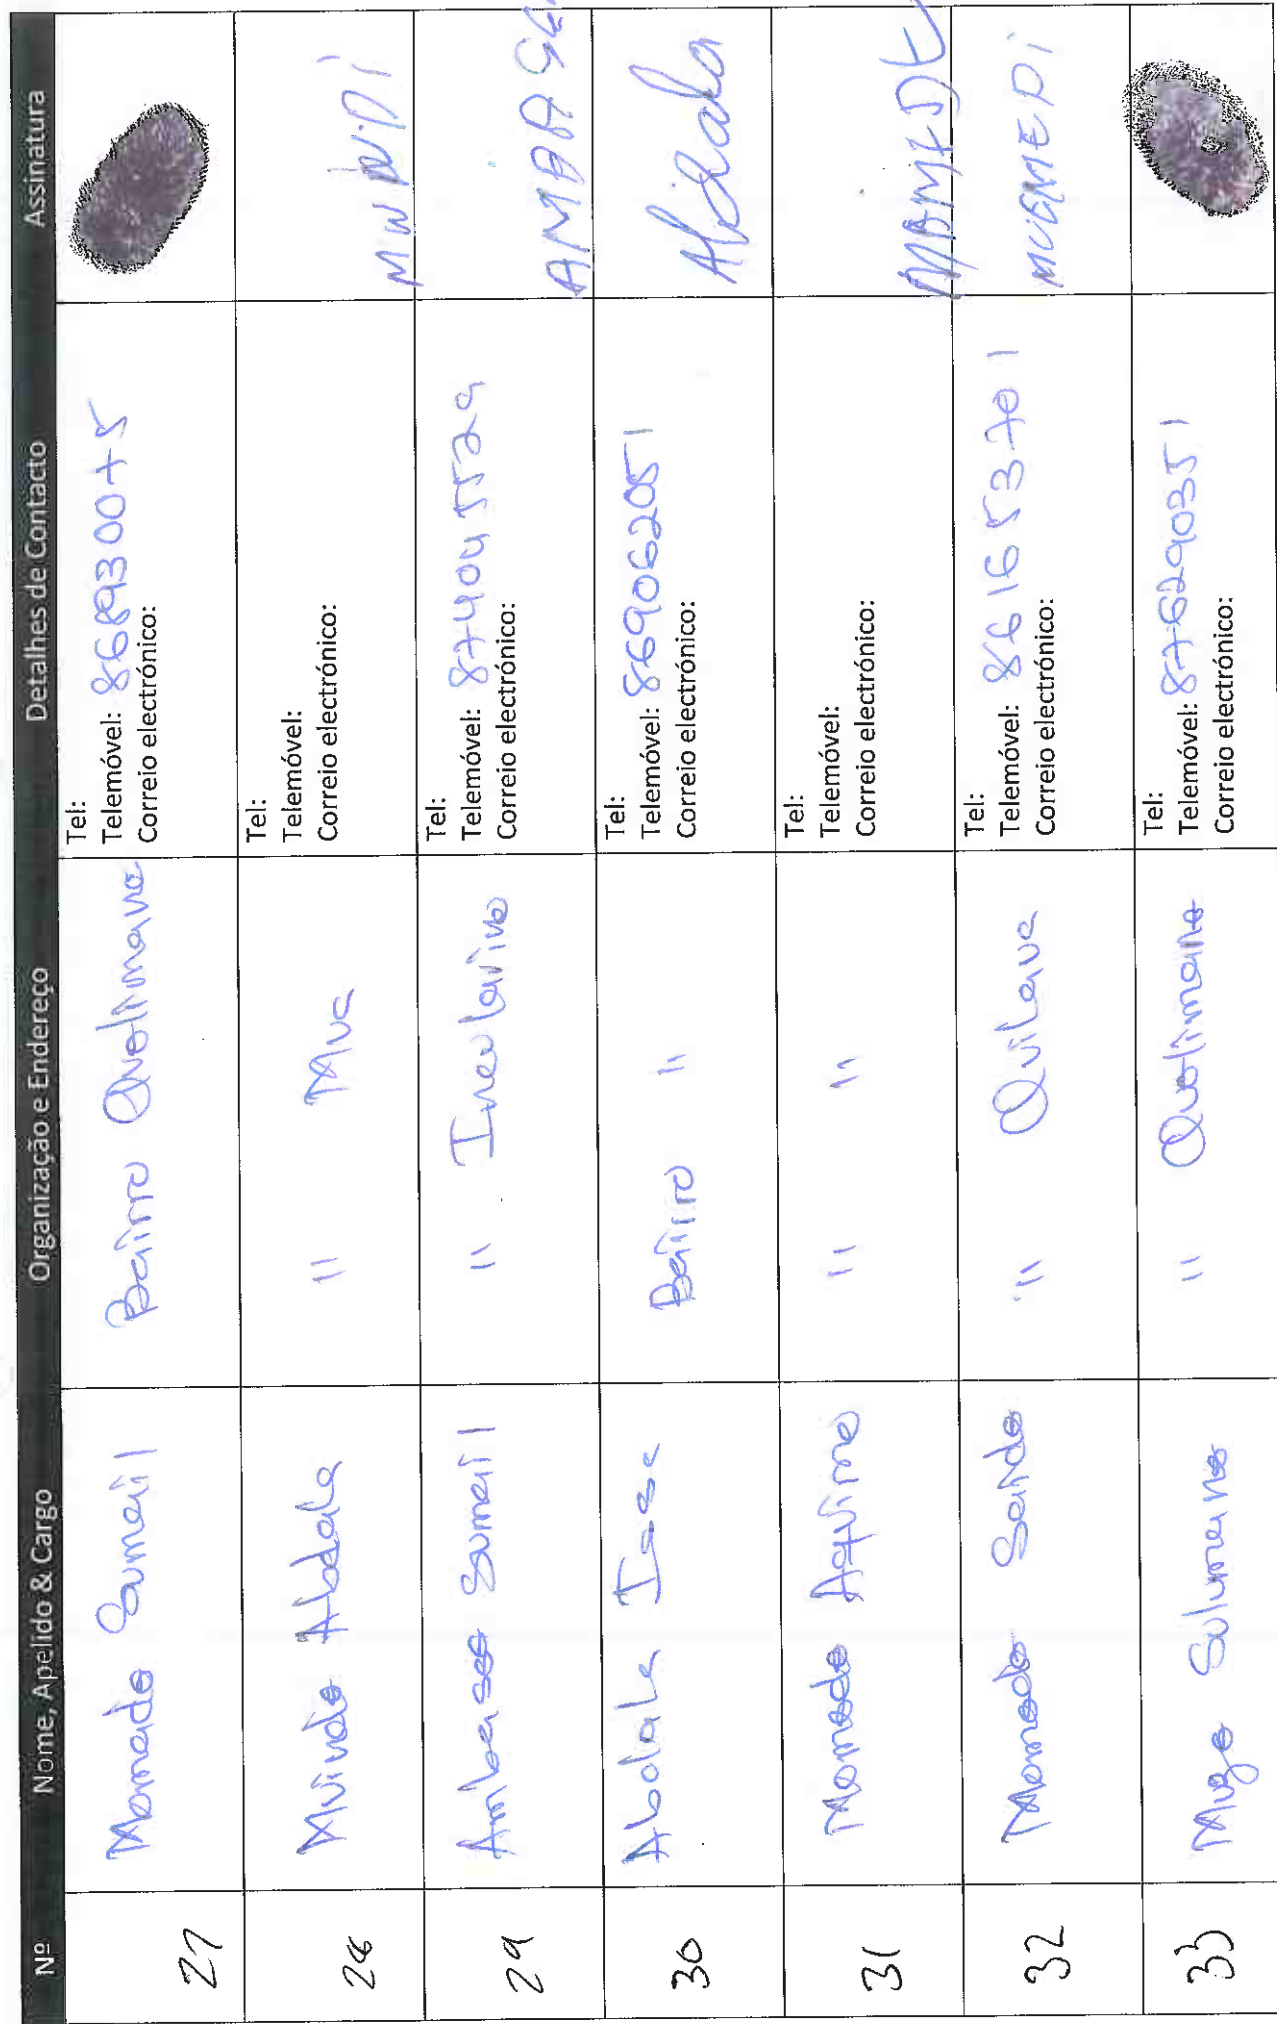 Nº Nome, Apelido & Cargo Organização e Endereço Detalhes de Contacto Assinatura
27 Momade Sumail Bairro Quelimane
Tel:
Telemóvel: 868930075
Correio electrónico:
28 Muindo Abdala " Mua
Tel:
Telemóvel:
Correio electrónico:
29 Ambasse Sumail "
Tel:
Telemóvel: 874045529
Correio electrónico:
30 Abdala Issa Bairro "
Tel:
Telemóvel: 869062051
Correio electrónico:
31 Momade Aquimo " "
Tel:
Telemóvel:
Correio electrónico:
32 Momade Saide " Quilaua
Tel:
Telemóvel: 861653701
Correio electrónico:
33 Sulumane " Quelimane
Tel:
Telemóvel: 876290351
Correio electrónico: